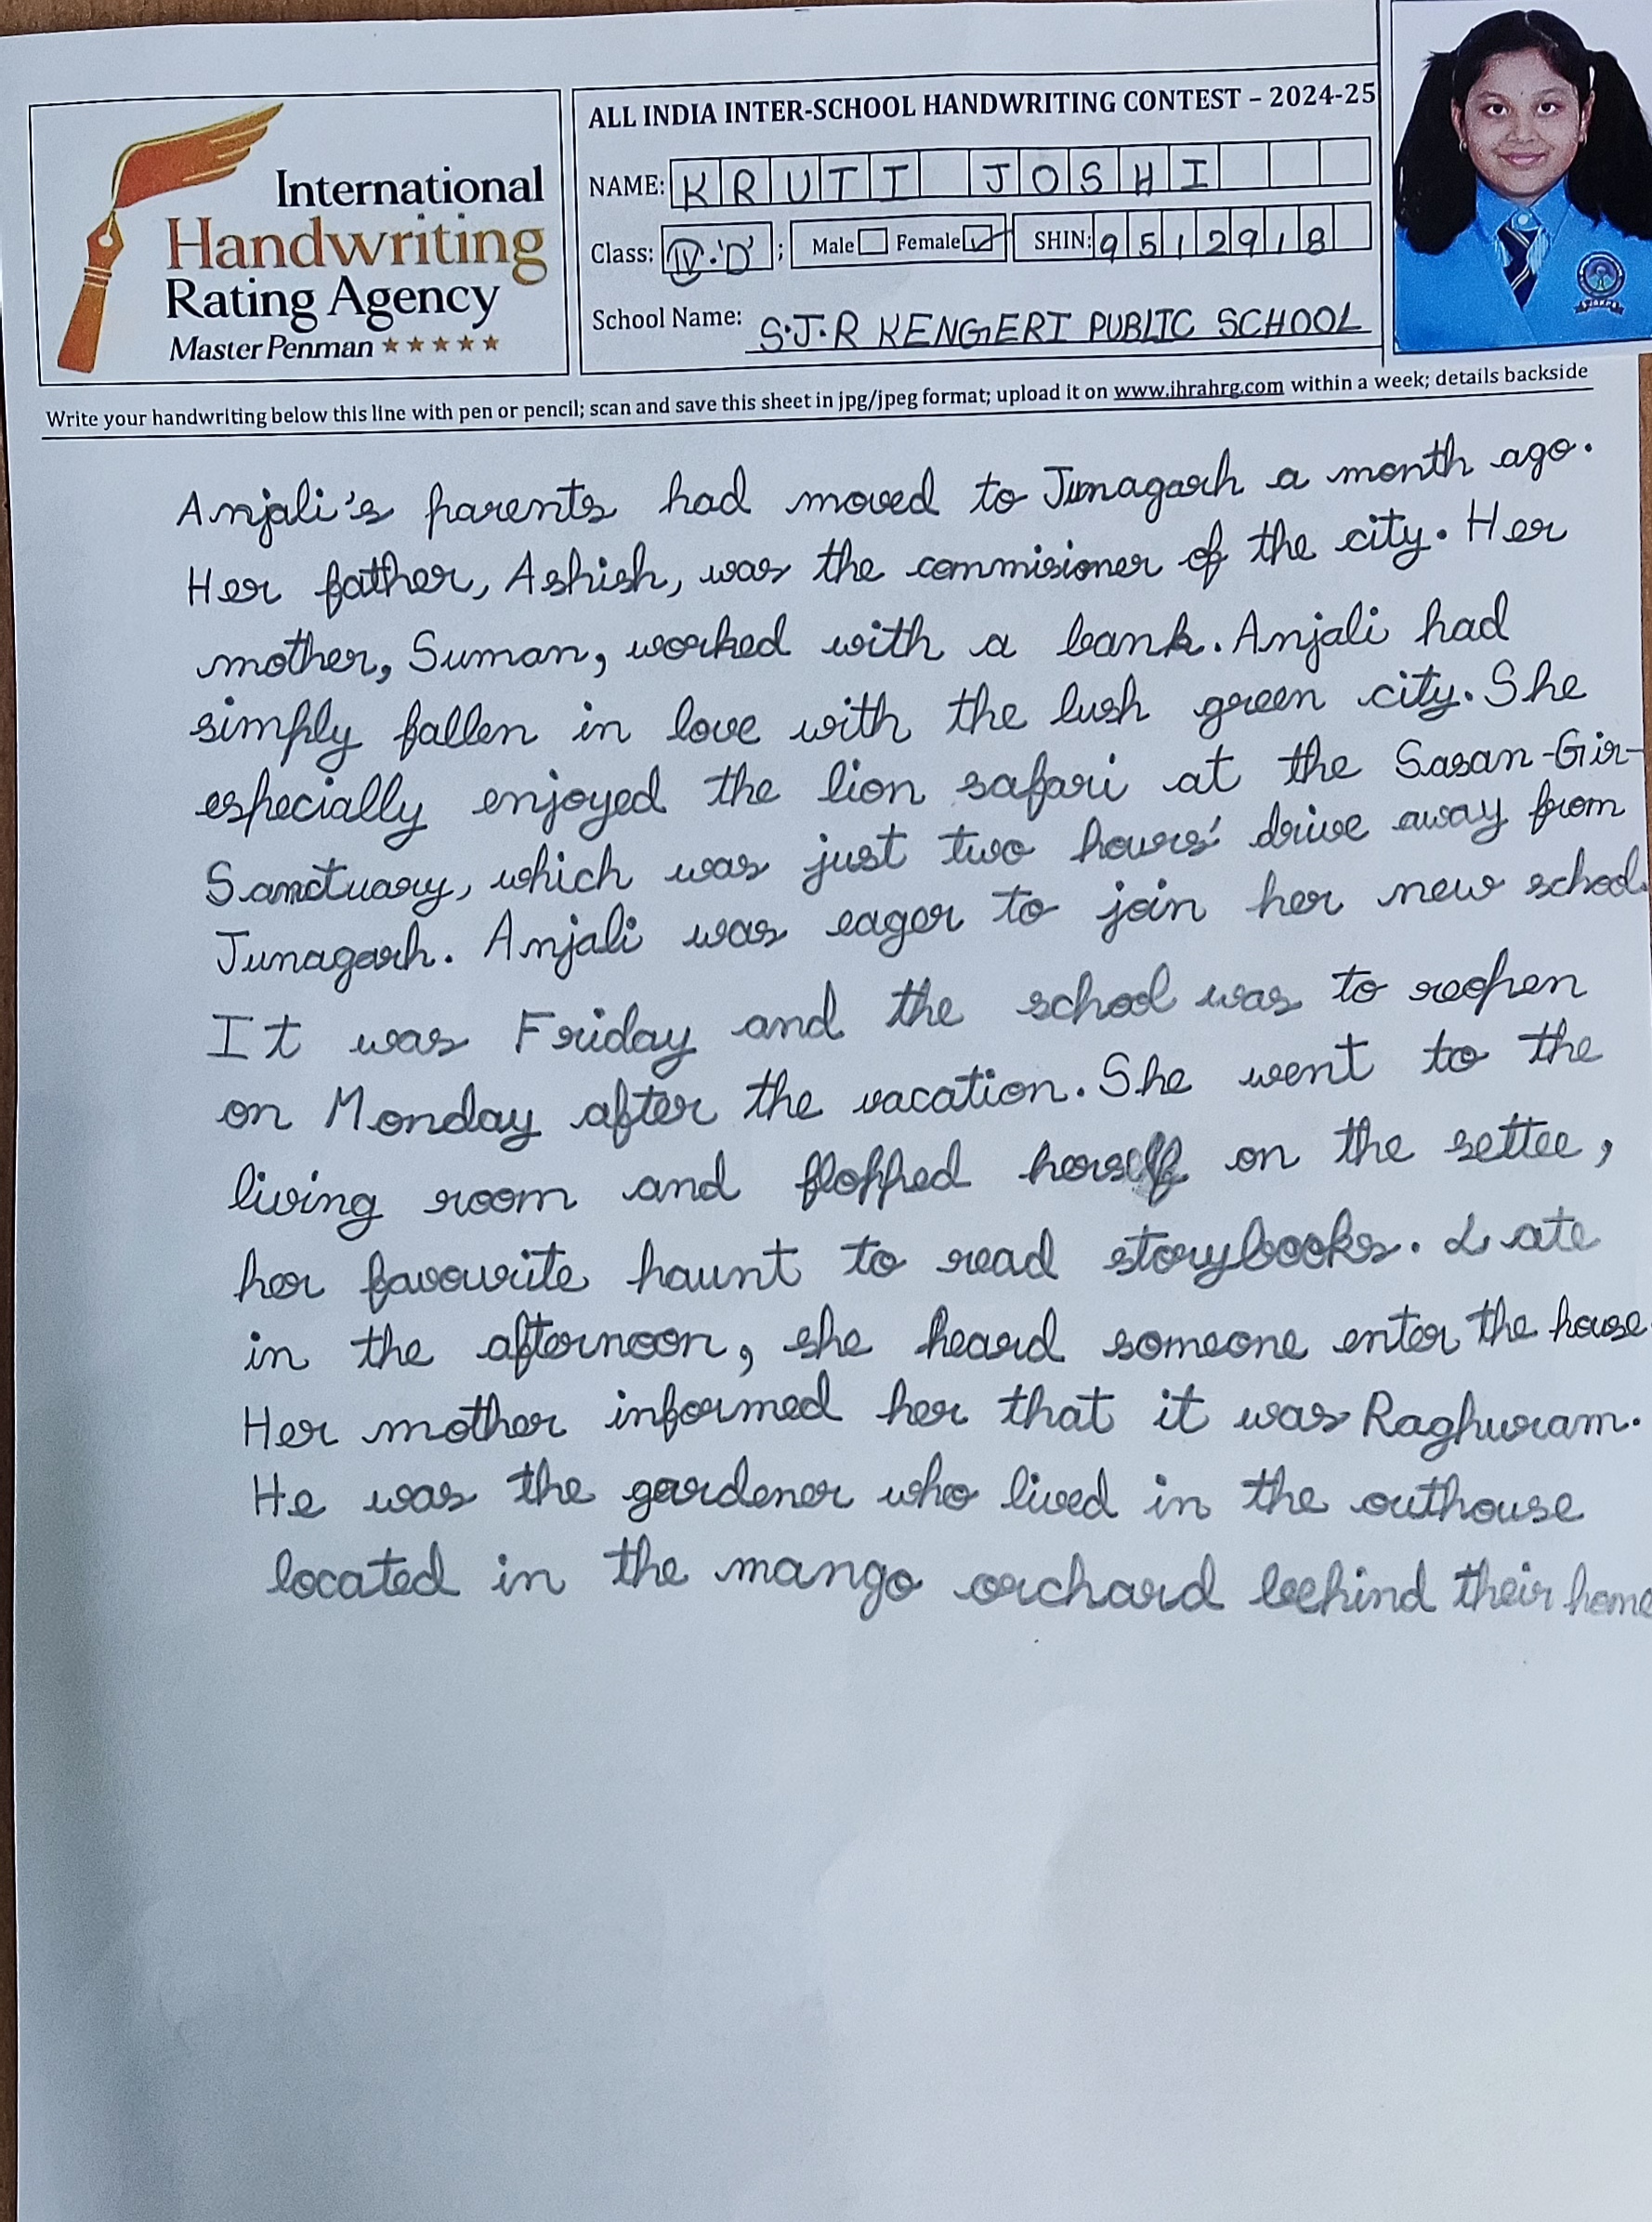 International
Handwriting
Rating Agency
Master Penman ★★★★★
ALL INDIA INTER-SCHOOL HANDWRITING CONTEST – 2024-25
NAME: KRUTI JOSHI
Class: IV.'D' ; Male Female ✓ SHIN: 9512918
School Name: S.J.R KENGERI PUBLIC SCHOOL
Write your handwriting below this line with pen or pencil; scan and save this sheet in jpg/jpeg format; upload it on www.ihrahrg.com within a week; details backside
Anjali's parents had moved to Junagarh a month ago.
Her father, Ashish, was the commisioner of the city. Her
mother, Suman, worked with a bank. Anjali had
simply fallen in love with the lush green city. She
especially enjoyed the lion safari at the Sasan-Gir-
Sanctuary, which was just two hours' drive away from
Junagarh. Anjali was eager to join her new school.
It was Friday and the school was to reopen
on Monday after the vacation. She went to the
living room and flopped herself on the settee,
her favourite haunt to read storybooks. Late
in the afternoon, she heard someone enter the house.
Her mother informed her that it was Raghuram.
He was the gardener who lived in the outhouse
located in the mango orchard behind their home